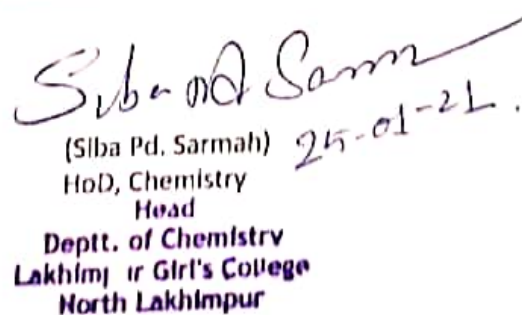 Siba Pd Sarma
25-01-21.
(Siba Pd. Sarmah)
HoD, Chemistry
Head
Deptt. of Chemistry
Lakhimpur Girl's College
North Lakhimpur